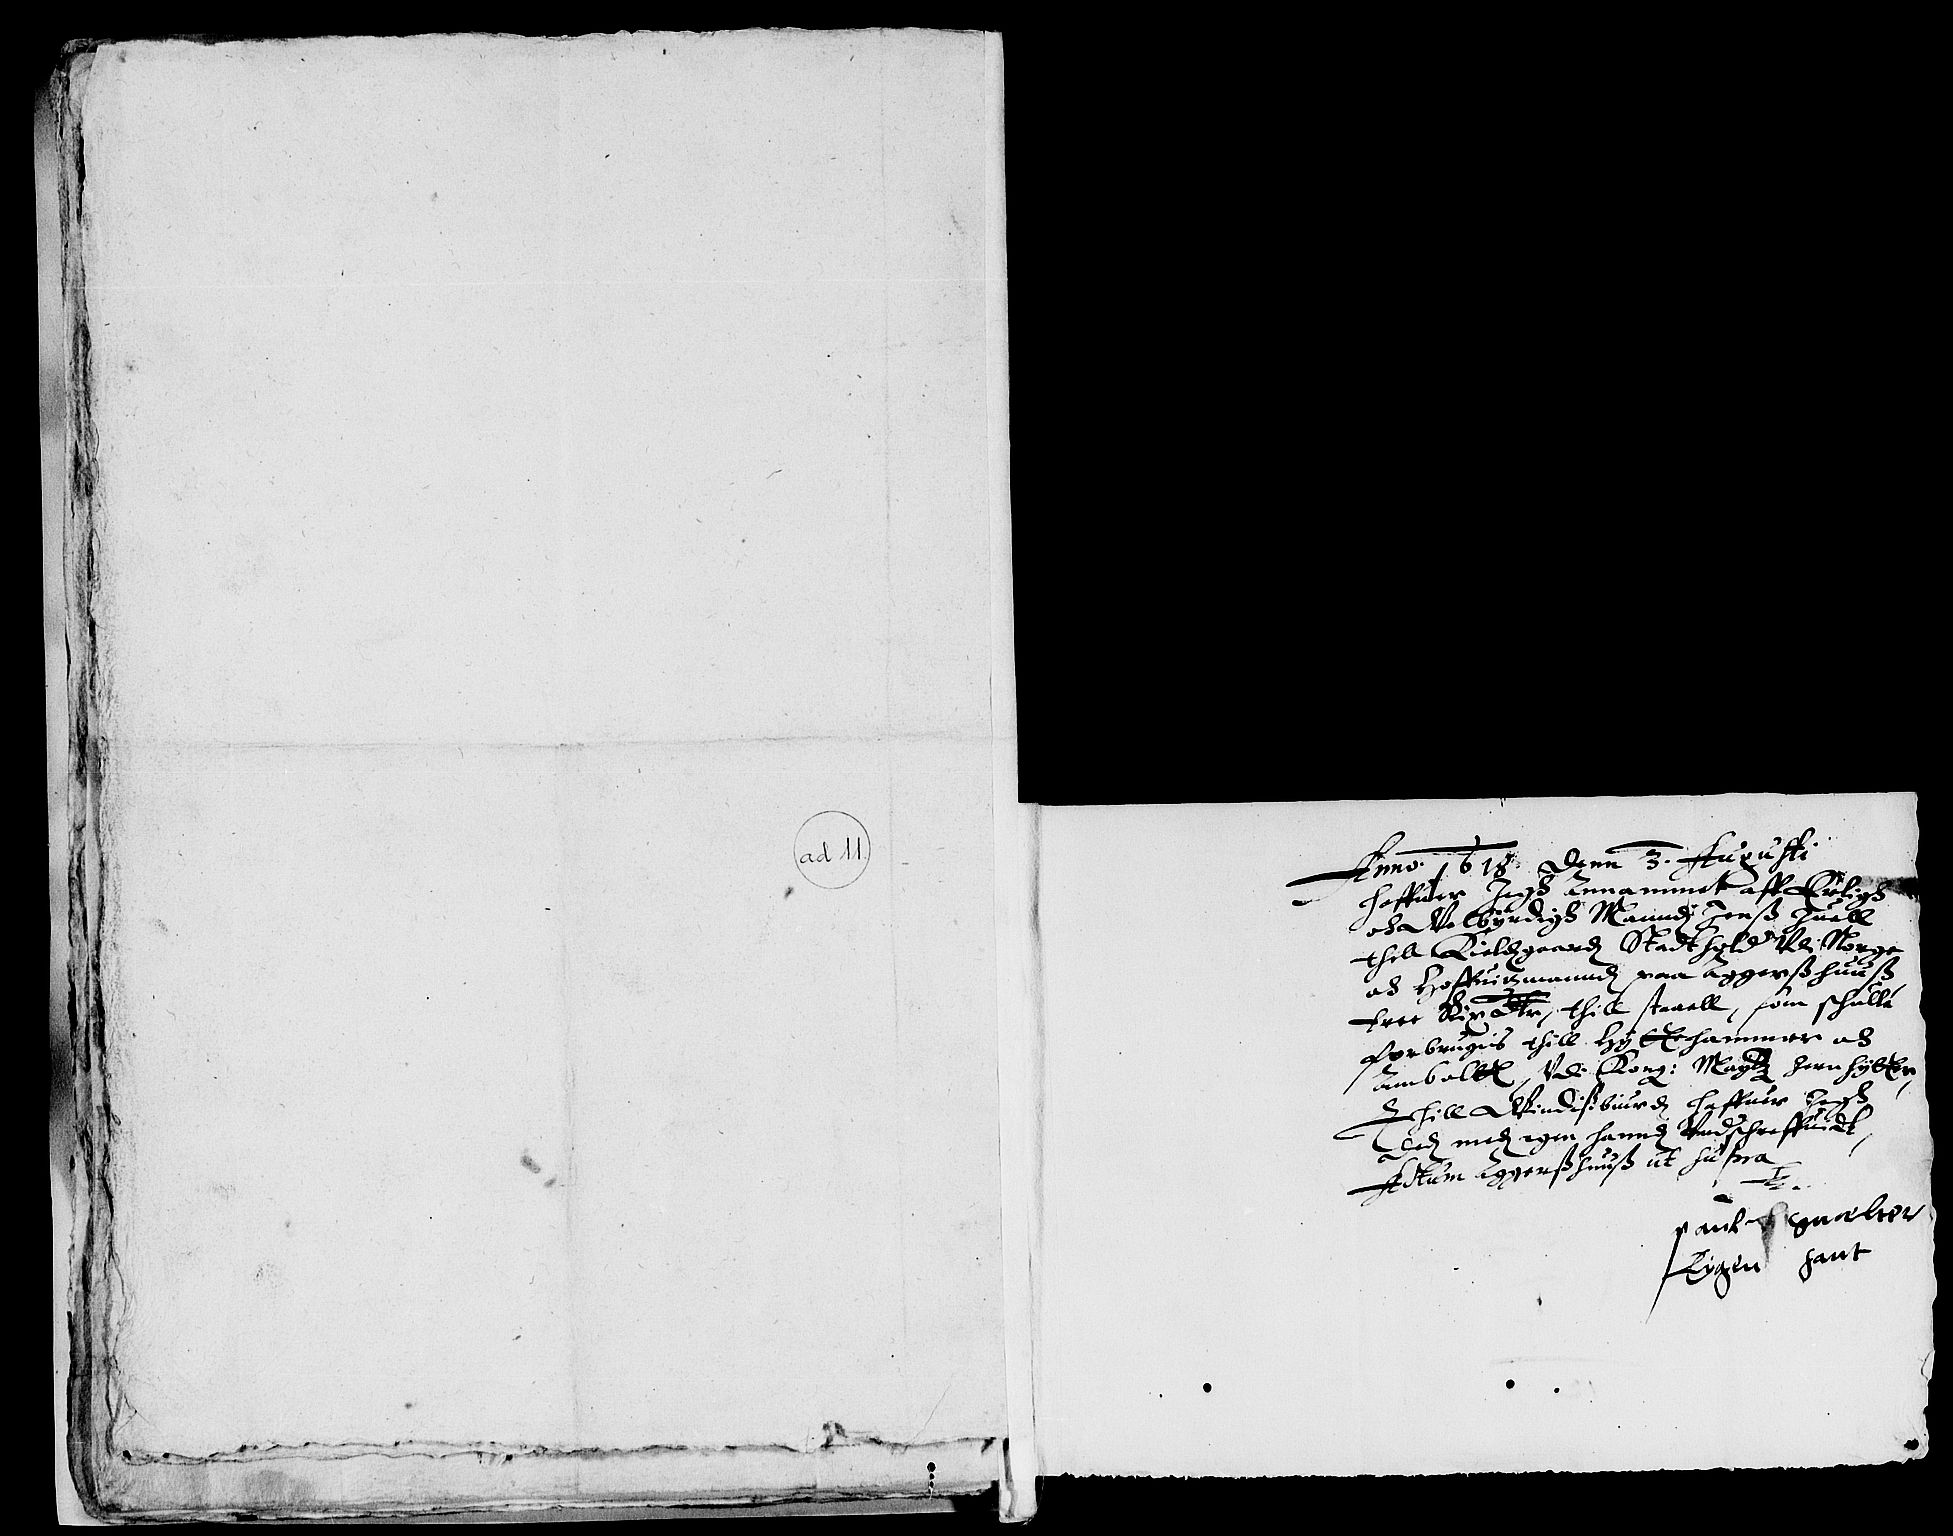 ad 11
Anno 1618 Denn 3. Augusti
haffuer Jegh Annammet aff Erligh
och Velbyrdigh Mannd Jenß Juell
thill Kieldgaard Stadtholder Udi Norge
och Høffuidzmannd paa Aggerßhuuß,
tree thill staall, som schulle
forbrugis thill Hyttehammer och
Ambolt, Udi Kong: Maytz Jernhytter,
Thill Windißbiurd haffuer Jegh
Ded med egen hannd Undschreffuidt,
Actum Aggerßhuuß ut supra
paul
Eigen hant